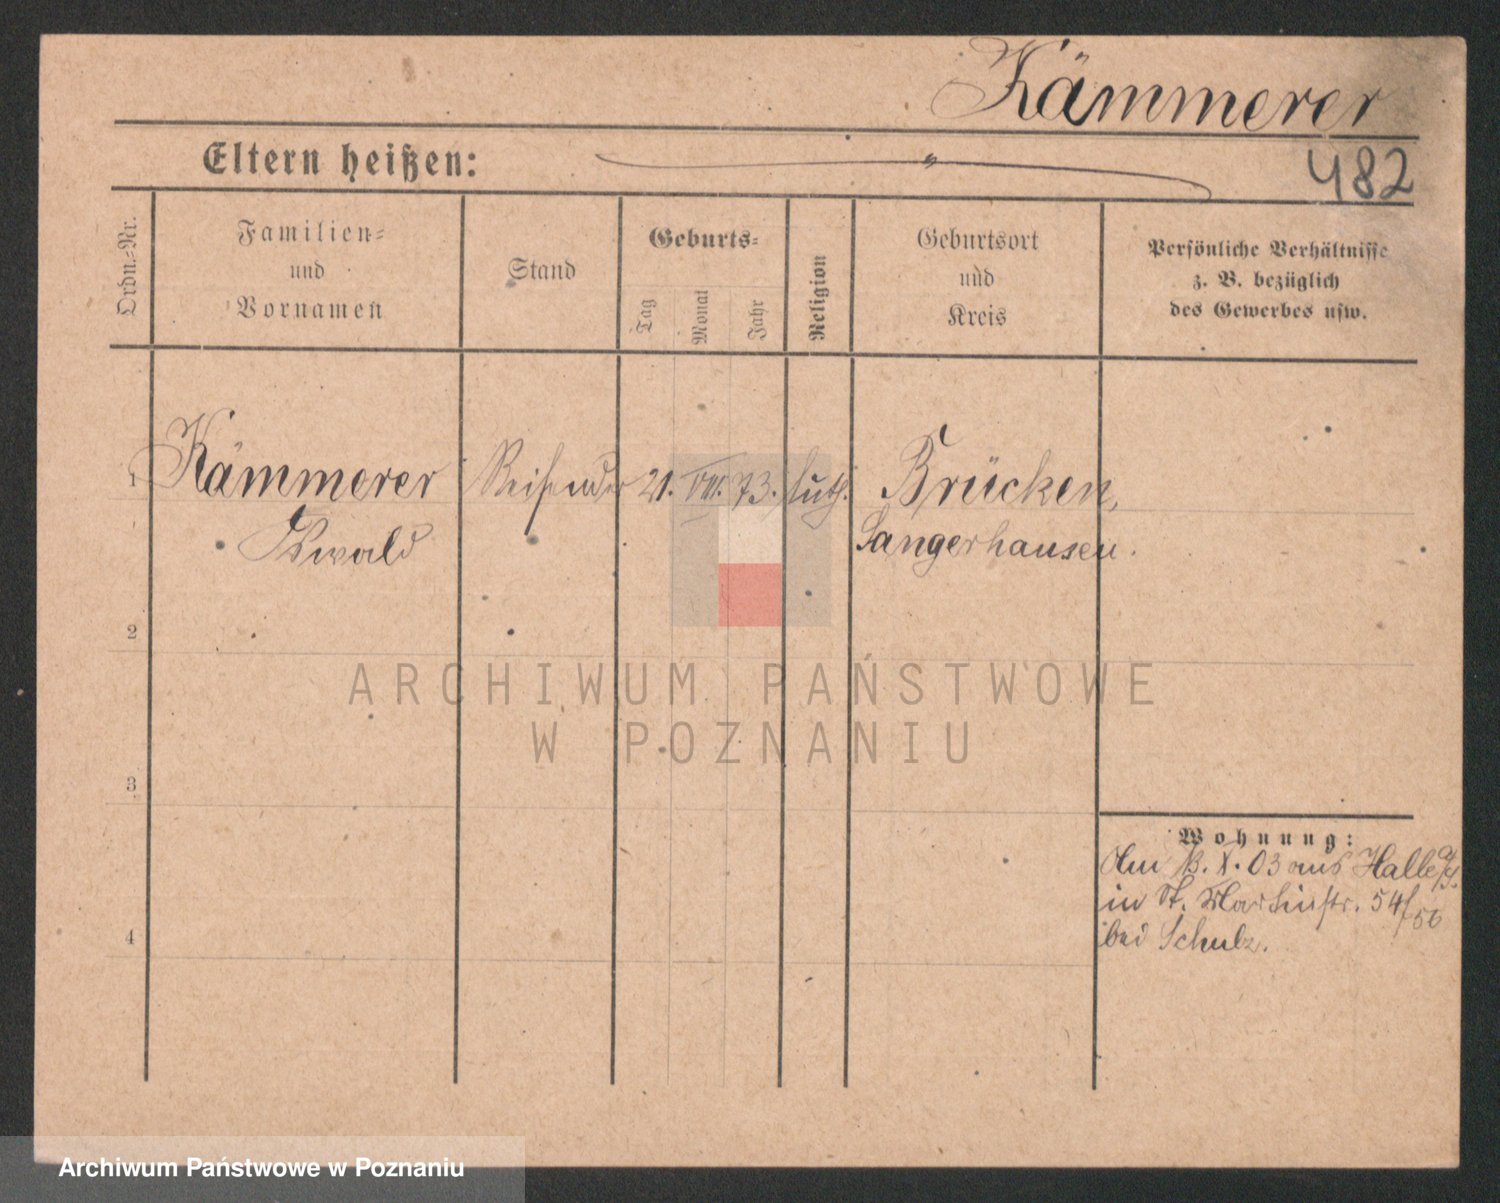 Kämmerer
Eltern heißen: "
482
Ordn.-Nr.
Familien-
und
Vornamen
Stand
Geburts-
Tag
Monat
Jahr
Religion
Geburtsort
und
Kreis
Persönliche Verhältnisse
z. B. bezüglich
des Gewerbes usw.
1 Kämmerer Reisender 21. VIII. 73. luth. Brücken,
Oswald Sangerhausen.
2
ARCHIWUM PAŃSTWOWE
W POZNANIU
3
Wohnung:
Am 13. X. 03 aus Halle a/S.
in St. Martinstr. 54/56
bei Schulz.
4
Archiwum Państwowe w Poznaniu